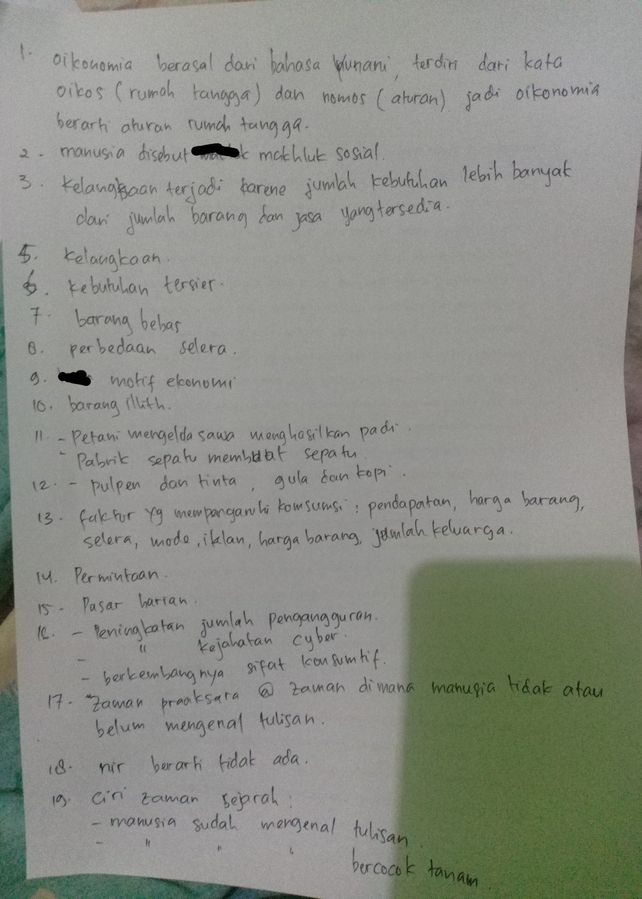 1. oikonomia berasal dari bahasa yunani, terdiri dari kata
oikos (rumah tangga) dan nomos (aturan) jadi oikonomia
berarti aturan rumah tangga.
2. manusia disebut makhluk sosial.
3. Kelangkaan terjadi karene jumlah kebutuhan lebih banyak
dari jumlah barang dan jasa yang tersedia.
5. Kelangkaan.
6. Kebutuhan tersier.
7. barang bebas
8. perbedaan selera.
9. motif ekonomi
10. barang illith.
11. - Petani mengelda sawa menghasilkan padi.
- Pabrik sepatu membuat sepatu.
12. - pulpen dan tinta, gula dan kopi.
13. faktor yg mempangaruhi komsumsi : pendapatan, harga barang,
selera, mode, iklan, harga barang, jumlah keluarga.
14. Permintaan.
15. Pasar harian.
16. - Peningkatan jumlah pengangguran.
- " kejahatan cyber.
- berkembangnya sifat konsumtif.
17. Zaman praaksara @ zaman dimana manusia tidak atau
belum mengenal tulisan.
18. nir berarti tidak ada.
19. Ciri zaman sejarah :
- manusia sudah mengenal tulisan.
- " " " bercocok tanam.